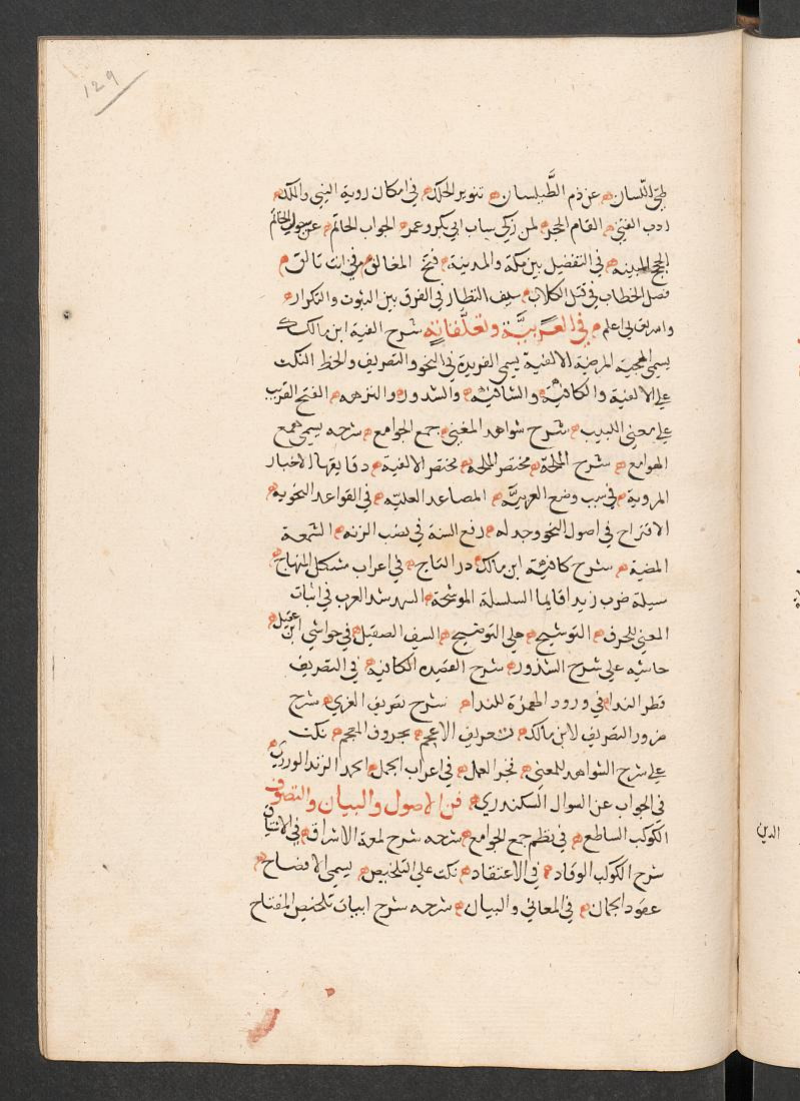 129
طي اللسان عن ذم الطَّيلسان تنوير الحلك في امكان روية النبي والملك
ادب الفتي القام الحجر لمن زكي ساب ابي بكر وعمر الجواب الحاتم عن سوال الخاتم
الحجج المبينه في التفضيل بين مكة والمدينة فتح المغالق في انت تالق
فصل الخطاب في قتل الكلاب سيف النظار في الفرق بين الثبوت والتكرار
والله تعالى اعلم في العربيَّة وتعلّقاته شرح الفية ابن مالك
يسمى البهجة المرضية الالفية يسمى الفريدة في النحو والتصريف والخط النكت
علي الالفية والكافية والشافية والشذور والنزهه الفتح القريب
علي مغني اللبيب شرح شواهد المغني جمع الجوامع شرحه يسمي همع
الهوامع شرح الملحة مختصر الملحة مختصر الالفية دقايقها الاخبار
المروية في سبب وضع العربيَّة المصاعد العليه في القواعد النحوية
الاقتراح في اصول النحو وجدله رفع السنة في نصب الزنه الشمعة
المضية شرح كافية ابن مالك در التاج في اعراب مشكل المنهاج
سيلة ضرب زيدا قايما السلسلة الموشحة الشهد شذ العرب في اثبات
المعني للحرف التوشيح علي التوضيح السيف الصقيل في حواشي ابن عقيل
حاشيه علي شرح الشذور شرح القصيده الكافية في التصريف
قطر الندا في ورود الهمزة للندا شرح تصريف العزي شرح
ضرور التصريف لابن مالك تعريف الاعجم بحروف المعجم نكت
علي شرح الشواهد للعيني فجر الثمد في اعراب اكمل الحمد الزند الوري
في الجواب عن السوال السكندري فن الاصول والبيان والتصوف
الكوكب الساطع في نظم جمع الجوامع شرحه شرح لمعة الاشراق في الاشتقاق
شرح الكوكب الوقاد في الاعتقاد نكت علي التلخيص يسمي الافصاح
عقود الجمان في المعاني والبيان شرحه شرح ابيات تلخيص المفتاح
الدين